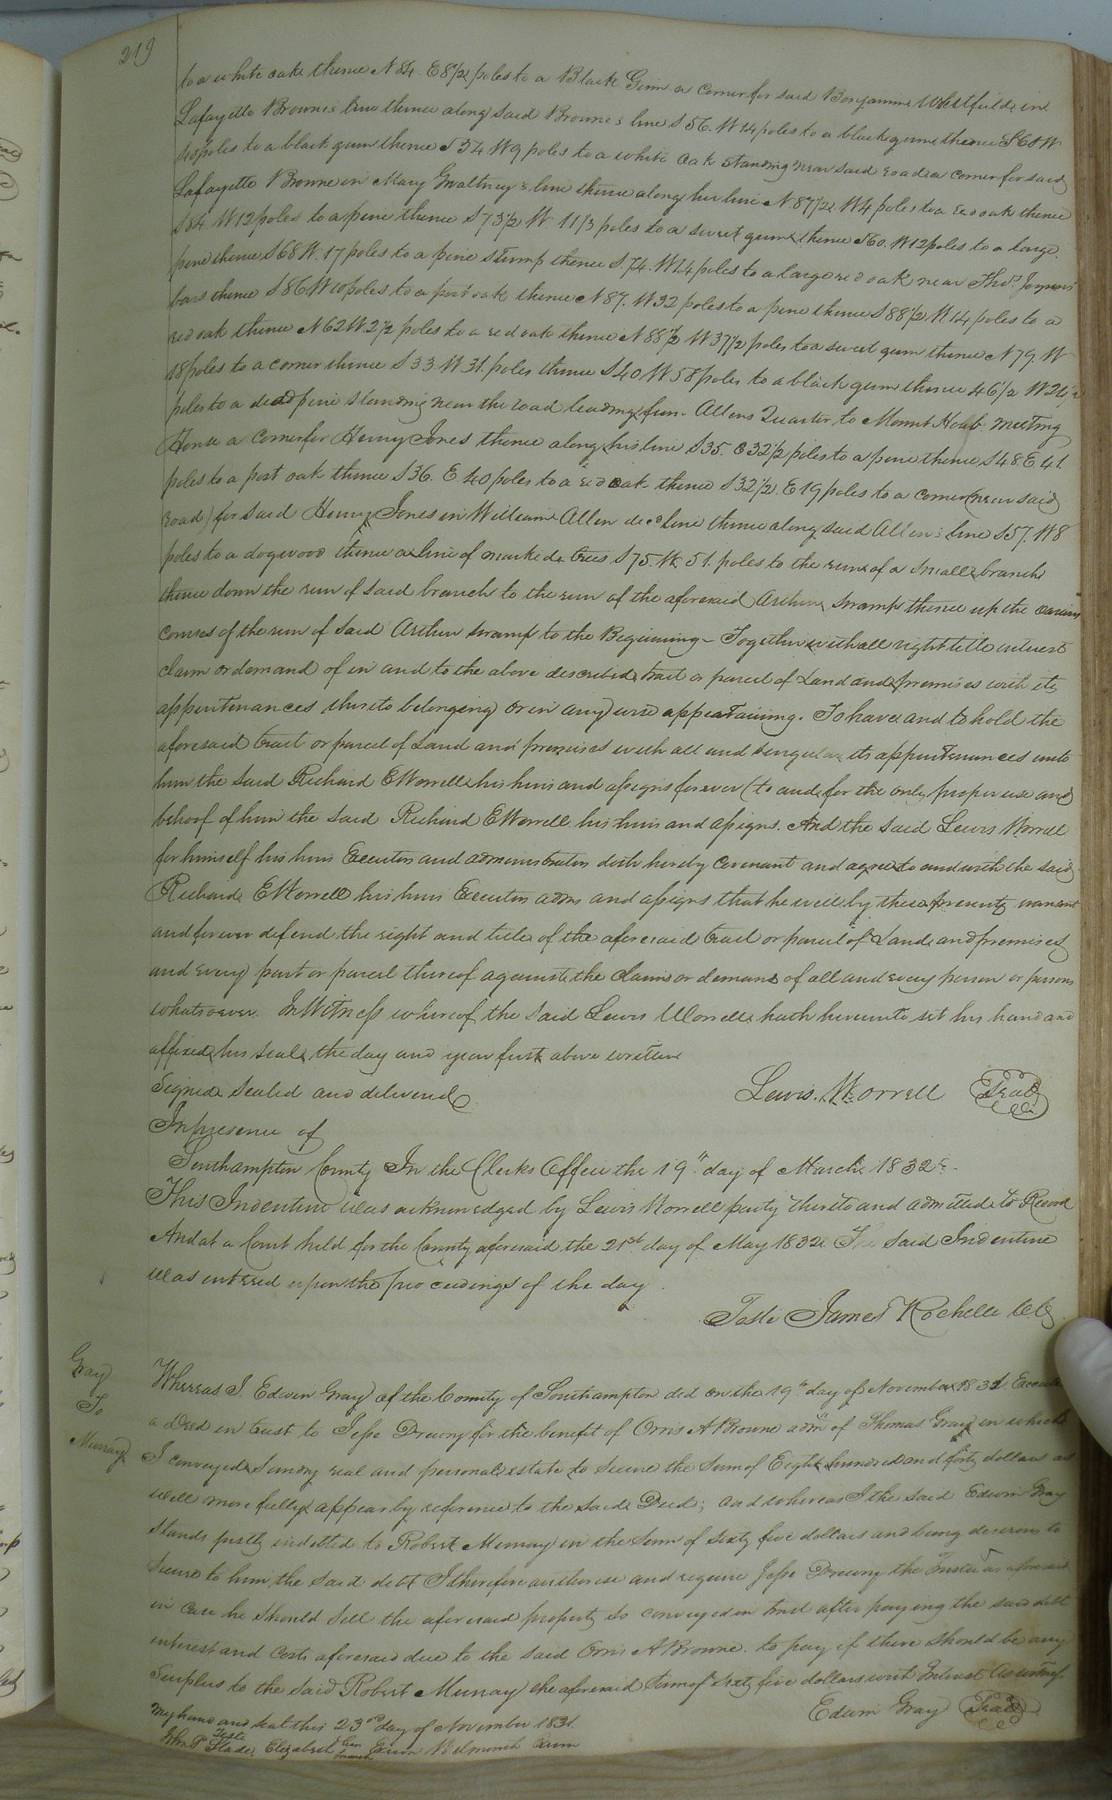 219
to a white oak thence N 84. E 8½ poles to a Black Gum a corner for said Benjamin Whitfield in
Lafayette Browne's line thence along said Browne's line S 56. W 14 poles to a black gum thence S 60 W
poles to a black gum thence S 34 W 9 poles to a white Oak standing near said road a corner for said
Lafayette Browne in Mary Gwaltney's line thence along her line N 87½ W 4 poles to a red oak thence
S 84 W 12 poles to a pine thence S 73½ W 11⅓ poles to a sweet gum thence S 60. W 12 poles to a large
pine thence S 68 W. 17 poles to a pine Stump thence S. 74. W 24 poles to a large red oak near Thos
bars thence S 86 W 10 poles to a post oak thence N 87. W 32 poles to a pine thence S 88½ W 14 poles to a
red oak thence N 62 W 2½ poles to a red oak thence N 88½ W 37½ poles to a sweet gum thence N 79. W
18 poles to a corner thence S 33 W 31. poles thence S 40 W 58 poles to a black gum thence 46½ W
poles to a dead pine standing near the road leading from Allens Quarter to Mount Horeb meeting
House a corner for Henry Jones thence along his line S 35. E 32½ poles to a pine thence S 48 E 41
poles to a post oak thence S 36. E 40 poles to a red oak thence S 32½ E 19 poles to a corner (near said
road) for said Henry Jones in William Allen decd line thence along said Allen's line S 57. W 8
poles to a dogwood thence a line of marked trees S 75. W. 51. poles to the run of a small branch
thence down the run of said branch to the run of the aforesaid Arthur swamp thence up the various
courses of the run of said Arthur swamp to the Beginning - Together with all right title interest
claim or demand of in and to the above described tract or parcel of Land and premises with its
appurtenances thereto belonging or in any wise appertaining. To have and to hold the
aforesaid tract or parcel of Land and premises with all and singular its appurtenances unto
him the said Richard E Worrell his heirs and assigns forever (to and for the only proper use and
behoof of him the said Richard E Worrell his heirs and assigns. And the said Lewis Worrell
for himself his heirs Executors and administrators doth hereby covenant and agree to and with the said
Richard E Worrell his heirs Executors adms and assigns that he will by these presents warrant
and forever defend the right and title of the aforesaid tract or parcel of Land and premises
and every part or parcel thereof against the claim or demand of all and every person or persons
whatsoever. In Witness whereof the said Lewis Worrell hath hereunto set his hand and
affixed his seal the day and year first above written
Signed sealed and delivered
Lewis. Worrell (Seal)
In presence of
Southampton County In the Clerks Office the 19th day of March 1832
This Indenture was acknowledged by Lewis Worrell party thereto and admitted to Record
And at a Court held for the County aforesaid the 21st day of May 1832 The said Indenture
was entered upon the proceedings of the day.
Teste James Rochelle Clk
Gray
To
Murray
Whereas I. Edwin Gray of the County of Southampton did on the 19th day of November 1831 Execute
a Deed in trust to Jesse Drewry for the benefit of Orris A Browne admr of Thomas Gray in which
I conveyed Sundry real and personal estate to secure the Sum of Eight hundred and forty dollars as
will more fully appear by reference to the said Deed; and whereas I the said Edwin Gray
stands justly indebted to Robert Murray in the sum of sixty five dollars and being desirous to
secure to him the said debt I therefore authorise and require Jesse Drewry the Trustee as aforesaid
in case he should sell the aforesaid property so conveyed in trust after paying the said debt
interest and costs aforesaid due to the said Orris A Browne. to pay if there should be any
surplus to the said Robert Murray the aforesaid sum of sixty five dollars with Interest Witness
my hand and seal this 23rd day of November 1831.
Edwin Gray (Seal)
Teste
John P Slade, Elizabeth